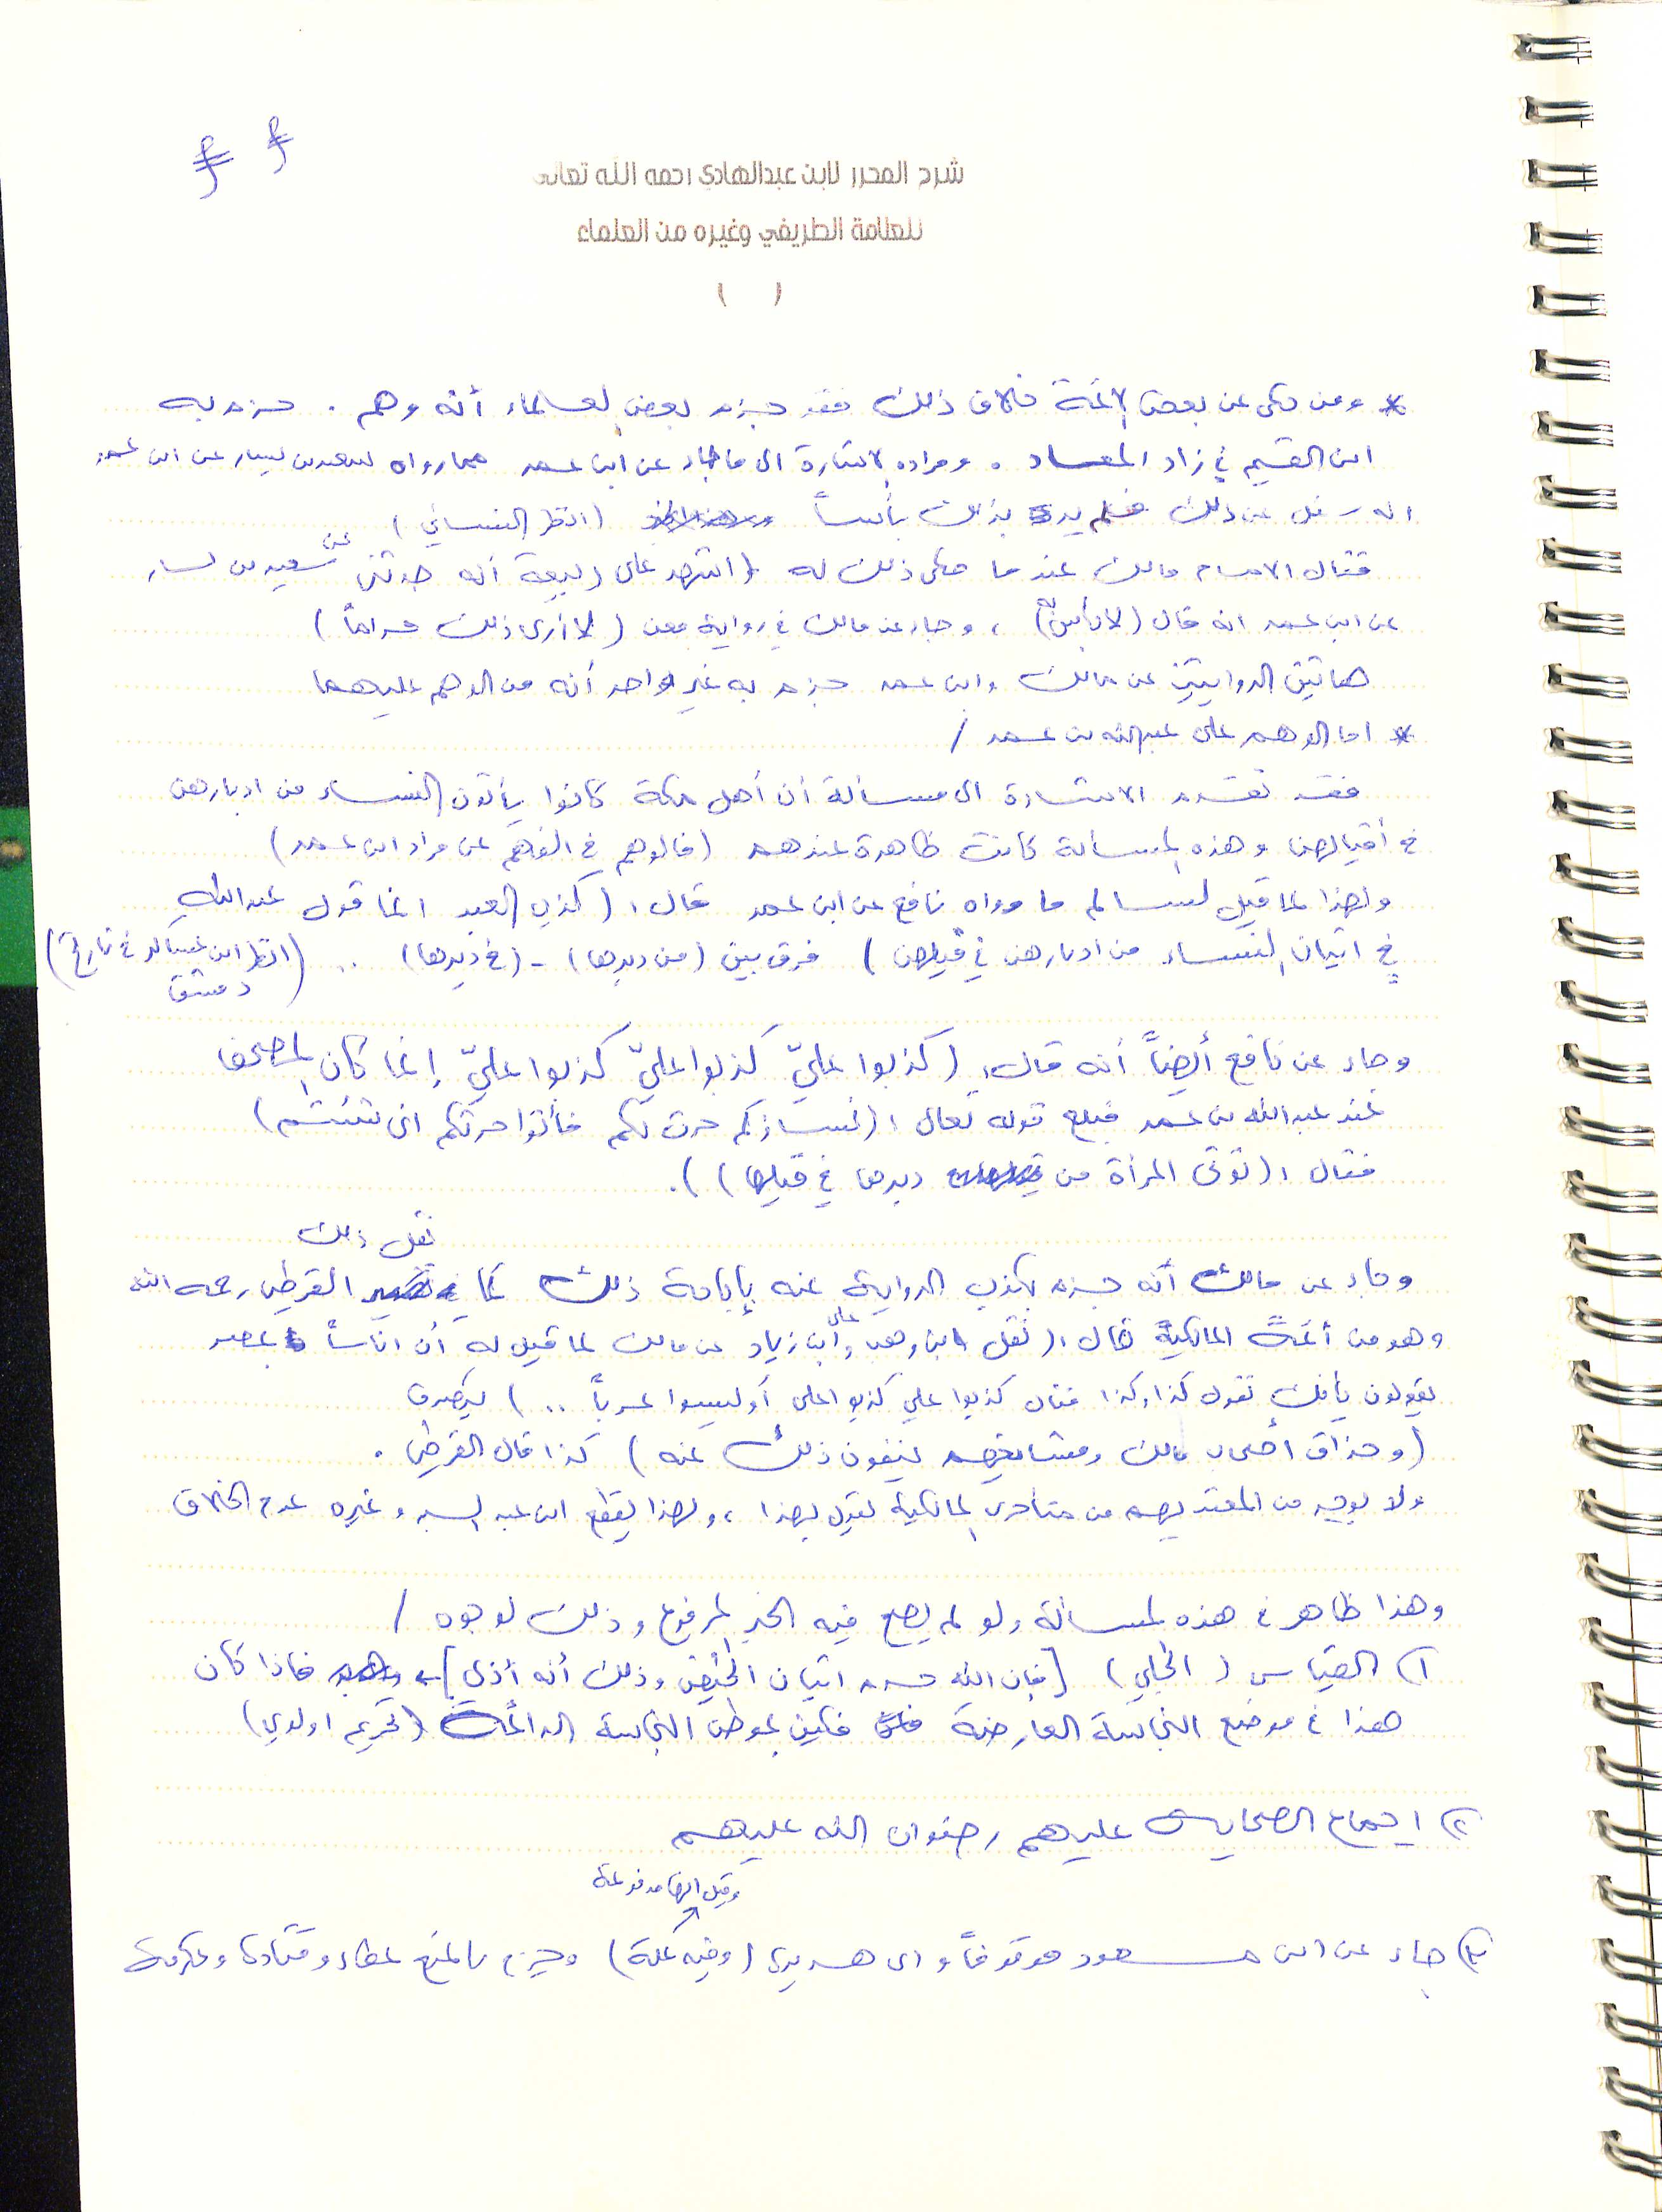 شرح المحرر لابن عبدالهادي رحمه الله تعالى
للعلامة الطريفي وغيره من العلماء
( )
* ومن حكى عن بعض الأئمة خلاف ذلك فقد جزم بعض العلماء أنه وهم . جزم به
ابن القيم في زاد المعاد . ومراده الاشارة الى ما جاء عن ابن عمر مما رواه سعيد بن يسار عن ابن عمر
انه سئل عن ذلك فلم ير بذلك بأساً (انظر النسائي)
فقال الامام مالك عند ما حكى ذلك له (اشهد على ربيعة أنه حدثني عن سعيد بن يسار
عن ابن عمر انه قال (لا بأس به) ، وجاء عن مالك في رواية معن (لا أرى ذلك حراماً)
هاتين الروايتين عن مالك وابن عمر جزم به غير واحد أنه من الوهم عليهما
* اما الوهم على عبدالله بن عمر /
فقد تقدم الاشارة الى مسألة أن أهل مكة كانوا يأتون النساء من ادبارهن
في أقبالهن وهذه المسألة كانت ظاهرة عندهم ( في الفهم عن مراد ابن عمر)
ولهذا لما قيل لسالم ما رواه نافع عن ابن عمر قال : (كذب العبد انما قول عبدالله
في اتيان النساء من ادبارهن في قبلهن) فرق بين (من دبرها) - (في دبرها) .. (انظر ابن عساكر في تاريخ
دمشق)
وجاء عن نافع أيضاً أنه قال : (كذبوا عليّ كذبوا عليّ كذبوا عليّ إنما كان المصحف
عند عبدالله بن عمر فبلغ قوله تعالى : (نساؤكم حرث لكم فأتوا حرثكم انى شئتم)
فقال : (تؤتى المرأة من دبرها في قبلها) ).
نقل ذلك
وجاء عن مالك أنه جزم بكذب الرواية عنه بإباحة ذلك كما القرطبي رحمه الله
وهو من أئمة المالكية قال : (نقل ابن وهب وعلي ابن زياد عن مالك لما قيل له أن اناساً بمصر
يقولون بأنك تقول كذا وكذا فقال كذبوا علي كذبوا على أوليسوا عرباً ..)
(وحذاق أصحاب مالك ومشايخهم ينفون ذلك عنه) كذا قال القرطبي .
ولا يوجد من المعتد بهم من متأخري المالكية يقول بهذا ، ولهذا يقطع ابن عبد البر وغيره عدم الخلاف
وهذا ظاهر في هذه المسألة ولو لم يصح فيه الخبر المرفوع وذلك لوجوه /
١) القياس (الجلي) [فإن الله حرم اتيان الحائض وذلك أنه أذى] فاذا كان
هذا في موضع النجاسة العارضة فكيف بموطن النجاسة الدائمة (تحريم اولوي)
٢) اجماع الصحابة عليهم رضوان الله عليهم
وقيل انها مدفوعة
٣) جاء عن ابن مسعود موقوفاً وابى هريرة (وفيه علة) وجزم بالمنع عطاء وقتادة وعكرمة